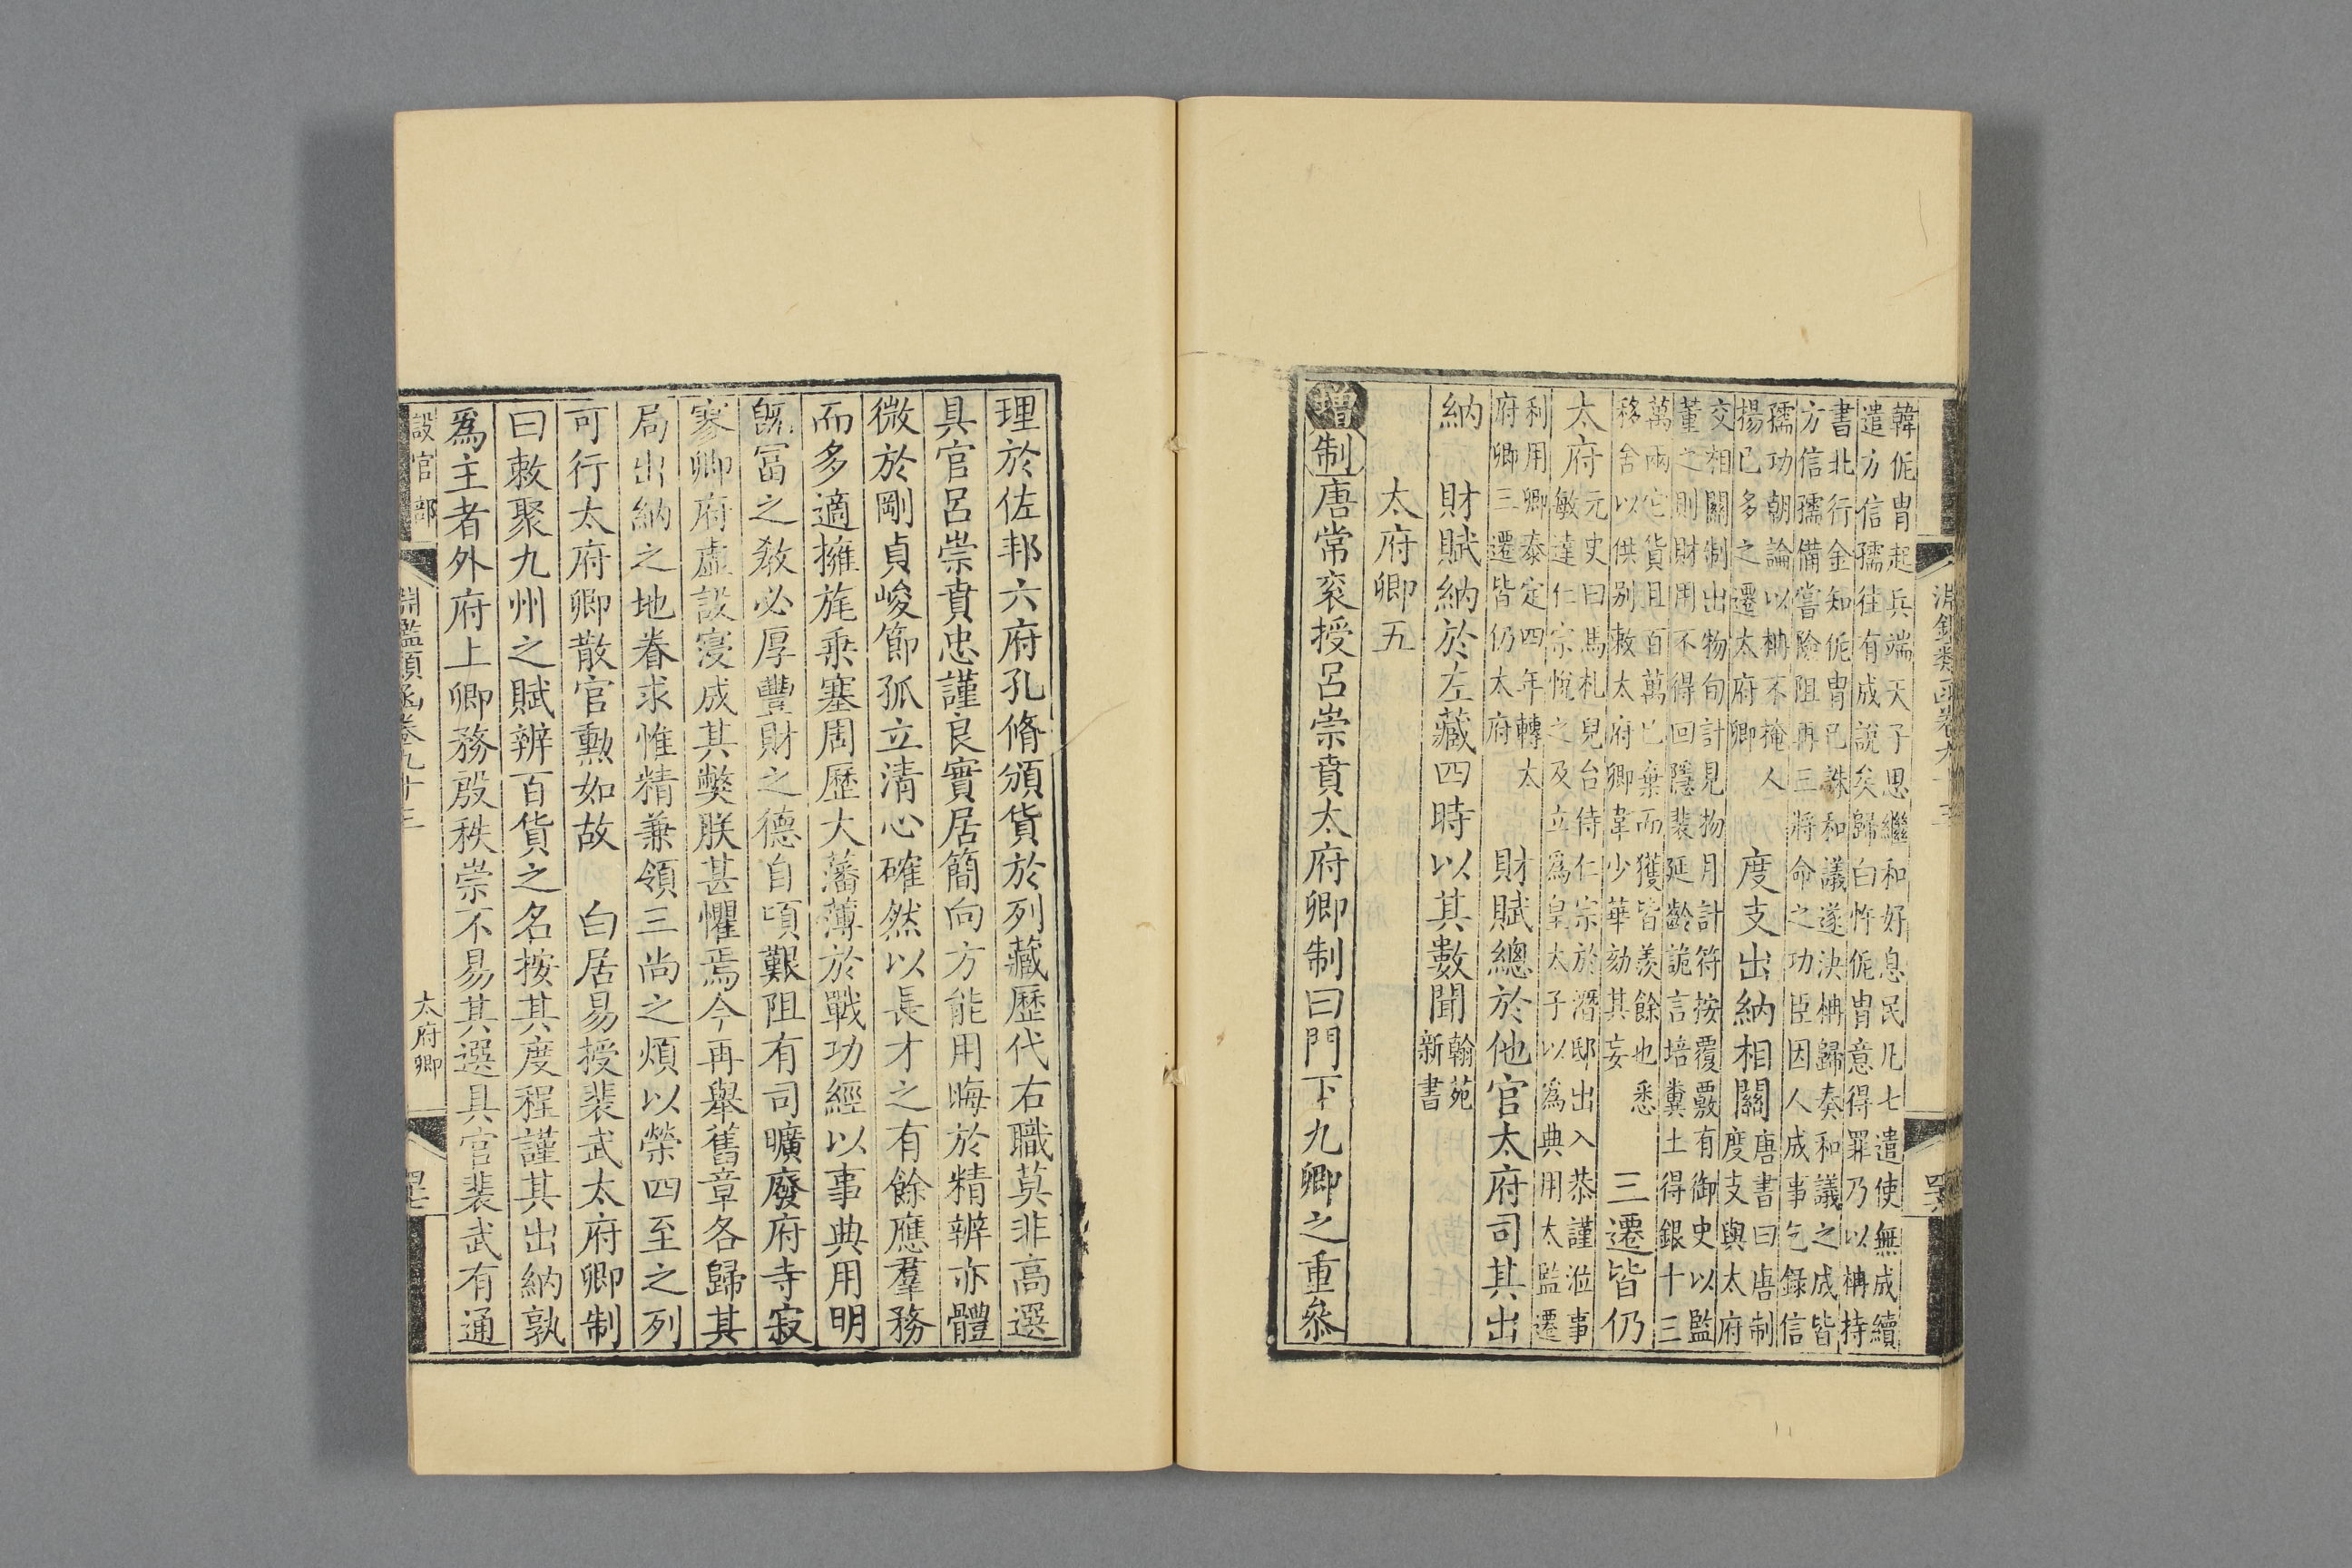 韓侂冑起兵端天子思繼和好息民凡七遣使無成續
遣方信孺往有成說矣歸白忤侂冑意得罪乃以柟持
書北行金知侂冑已誅和議遂決柟歸奏和議之成皆
方信孺備嘗險阻再三將命之功臣因人成事乞錄信
孺功朝論以柟不掩人
揚已多之遷太府卿
度支出納相關
唐書曰唐制
度支與太府
交相關制出物旬計見物月計符按覆覈有御史以監
董之則財用不得回隱裴延齡詭言培糞土得銀十三
萬兩它貨且百萬已棄而獲皆羨餘也悉
移舍以供別敕太府卿韋少華劾其妄
三遷皆仍
太府
元史曰馬札兒台侍仁宗於潛邸出入恭謹涖事
敏達仁宗悅之及立爲皇太子以為典用太監遷
利用卿泰定四年轉太
府卿三遷皆仍太府
財賦總於他官太府司其出
納
財賦納於左藏四時以其數聞
翰苑
新書
太府卿五
增制唐常袞授呂崇賁太府卿制曰門下九卿之重叅
理於佐邦六府孔脩頒貨於列藏歷代右職莫非高選
具官呂崇賁忠謹良實居簡向方能用晦於精辨亦體
微於剛貞峻節孤立清心確然以長才之有餘應羣務
而多適擁旄乘塞周歷大藩薄於戰功經以事典用明
旣冨之敎必厚豐財之德自頃艱阻有司曠廢府寺寂
寥卿府虛設寖成其獘朕甚懼焉今再舉舊章各歸其
局出納之地眷求惟精兼領三尚之煩以榮四至之列
可行太府卿散官勳如故
白居易授裴武太府卿制
曰敕聚九州之賦辨百貨之名按其度程謹其出納孰
爲主者外府上卿務殷秩崇不易其選具官裴武有通
設官部
淵鑑類函卷九十三
太府卿